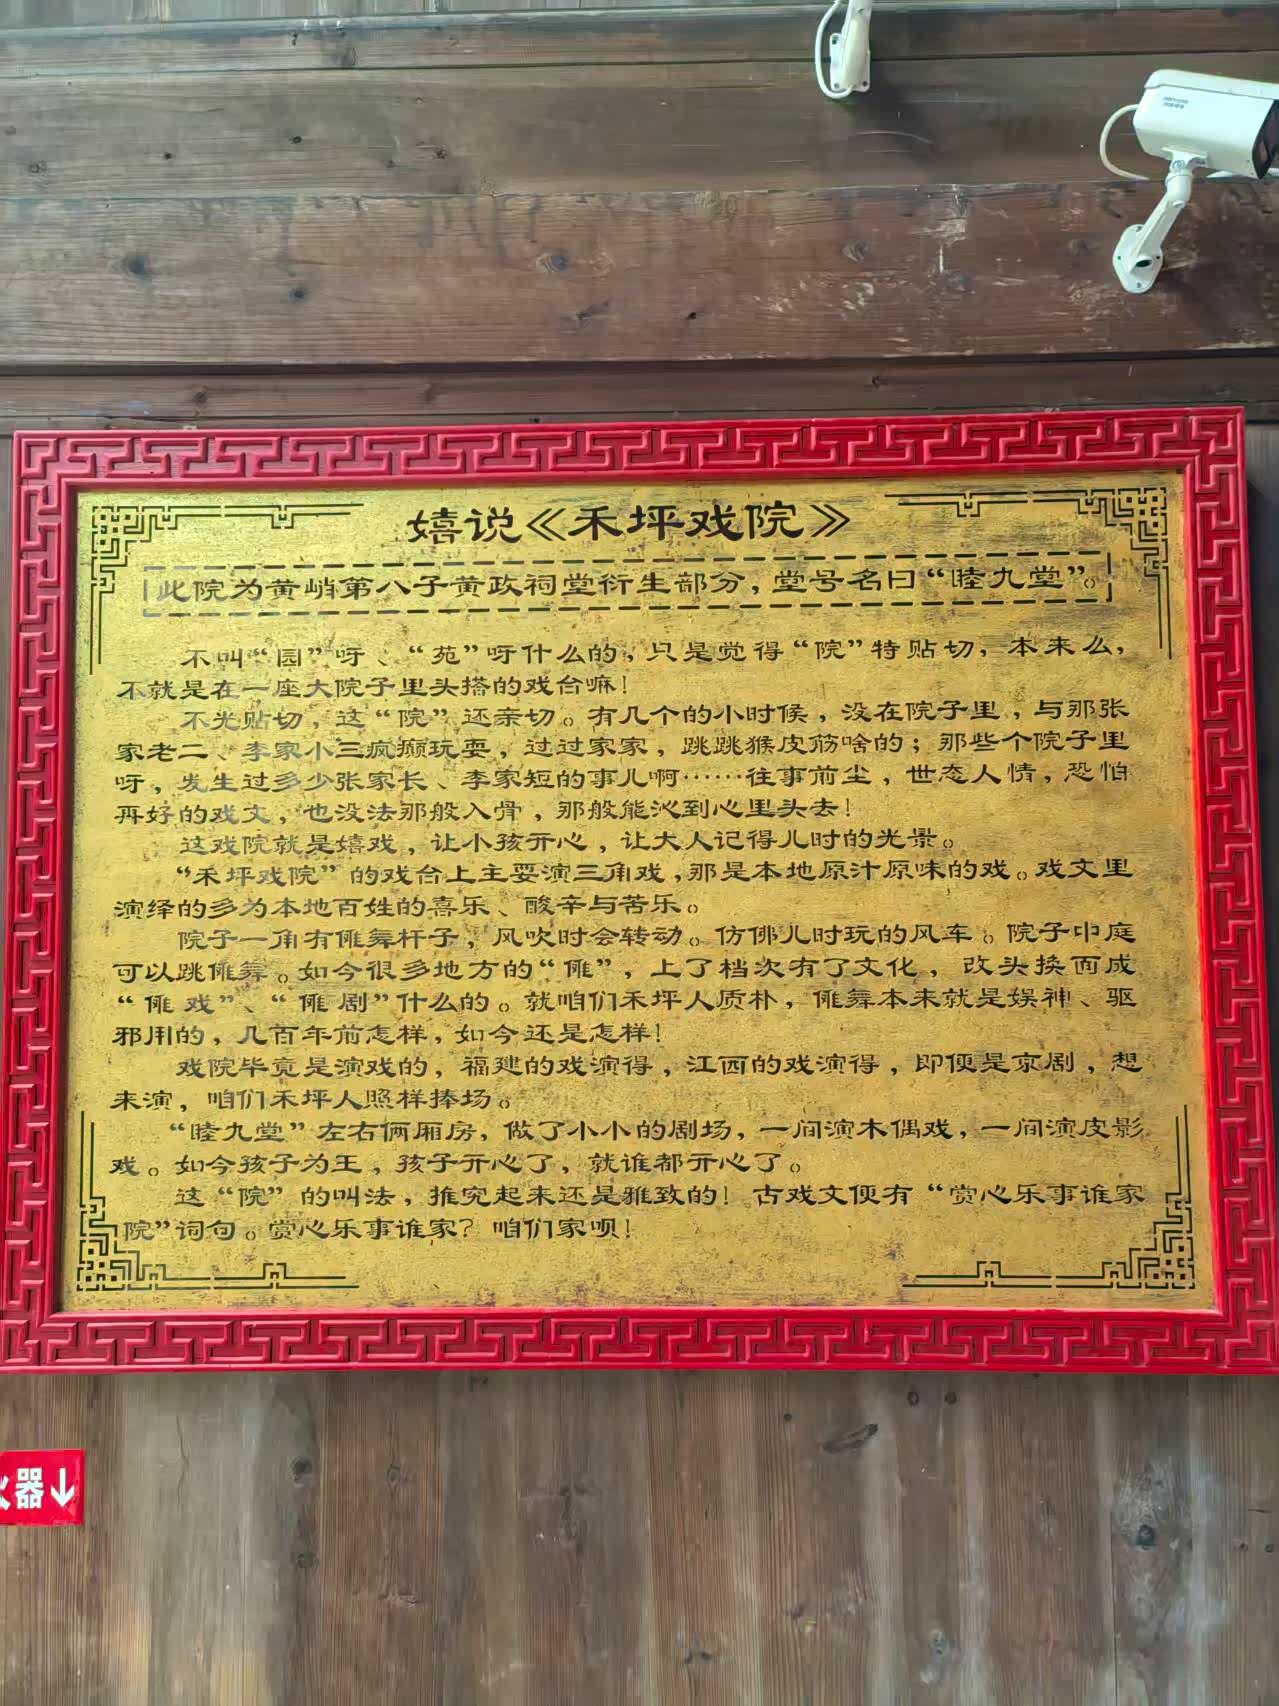 嬉说《禾坪戏院》
此院为黄峭第八子黄政祠堂衍生部分，堂号名曰“睦九堂”。
不叫“园”呀、“苑”呀什么的，只是觉得“院”特贴切，本来么，
不就是在一座大院子里头搭的戏台嘛！
不光贴切，这“院”还亲切。有几个的小时候，没在院子里，与那张
家老二、李家小三疯癫玩耍，过过家家，跳跳猴皮筋啥的；那些个院子里
呀，发生过多少张家长、李家短的事儿啊……往事前尘，世态人情，恐怕
再好的戏文，也没法那般入骨，那般能沁到心里头去！
这戏院就是嬉戏，让小孩开心，让大人记得儿时的光景。
“禾坪戏院”的戏台上主要演三角戏，那是本地原汁原味的戏。戏文里
演绎的多为本地百姓的喜乐、酸辛与苦乐。
院子一角有傩舞杆子，风吹时会转动。仿佛儿时玩的风车。院子中庭
可以跳傩舞。如今很多地方的“傩”，上了档次有了文化，改头换面成
“傩戏”、“傩剧”什么的。就咱们禾坪人质朴，傩舞本来就是娱神、驱
邪用的，几百年前怎样，如今还是怎样！
戏院毕竟是演戏的，福建的戏演得，江西的戏演得，即便是京剧，想
来演，咱们禾坪人照样捧场。
“睦九堂”左右俩厢房，做了小小的剧场，一间演木偶戏，一间演皮影
戏。如今孩子为王，孩子开心了，就谁都开心了。
这“院”的叫法，推究起来还是雅致的！古戏文便有“赏心乐事谁家
院”词句。赏心乐事谁家？咱们家呗！
火器↓